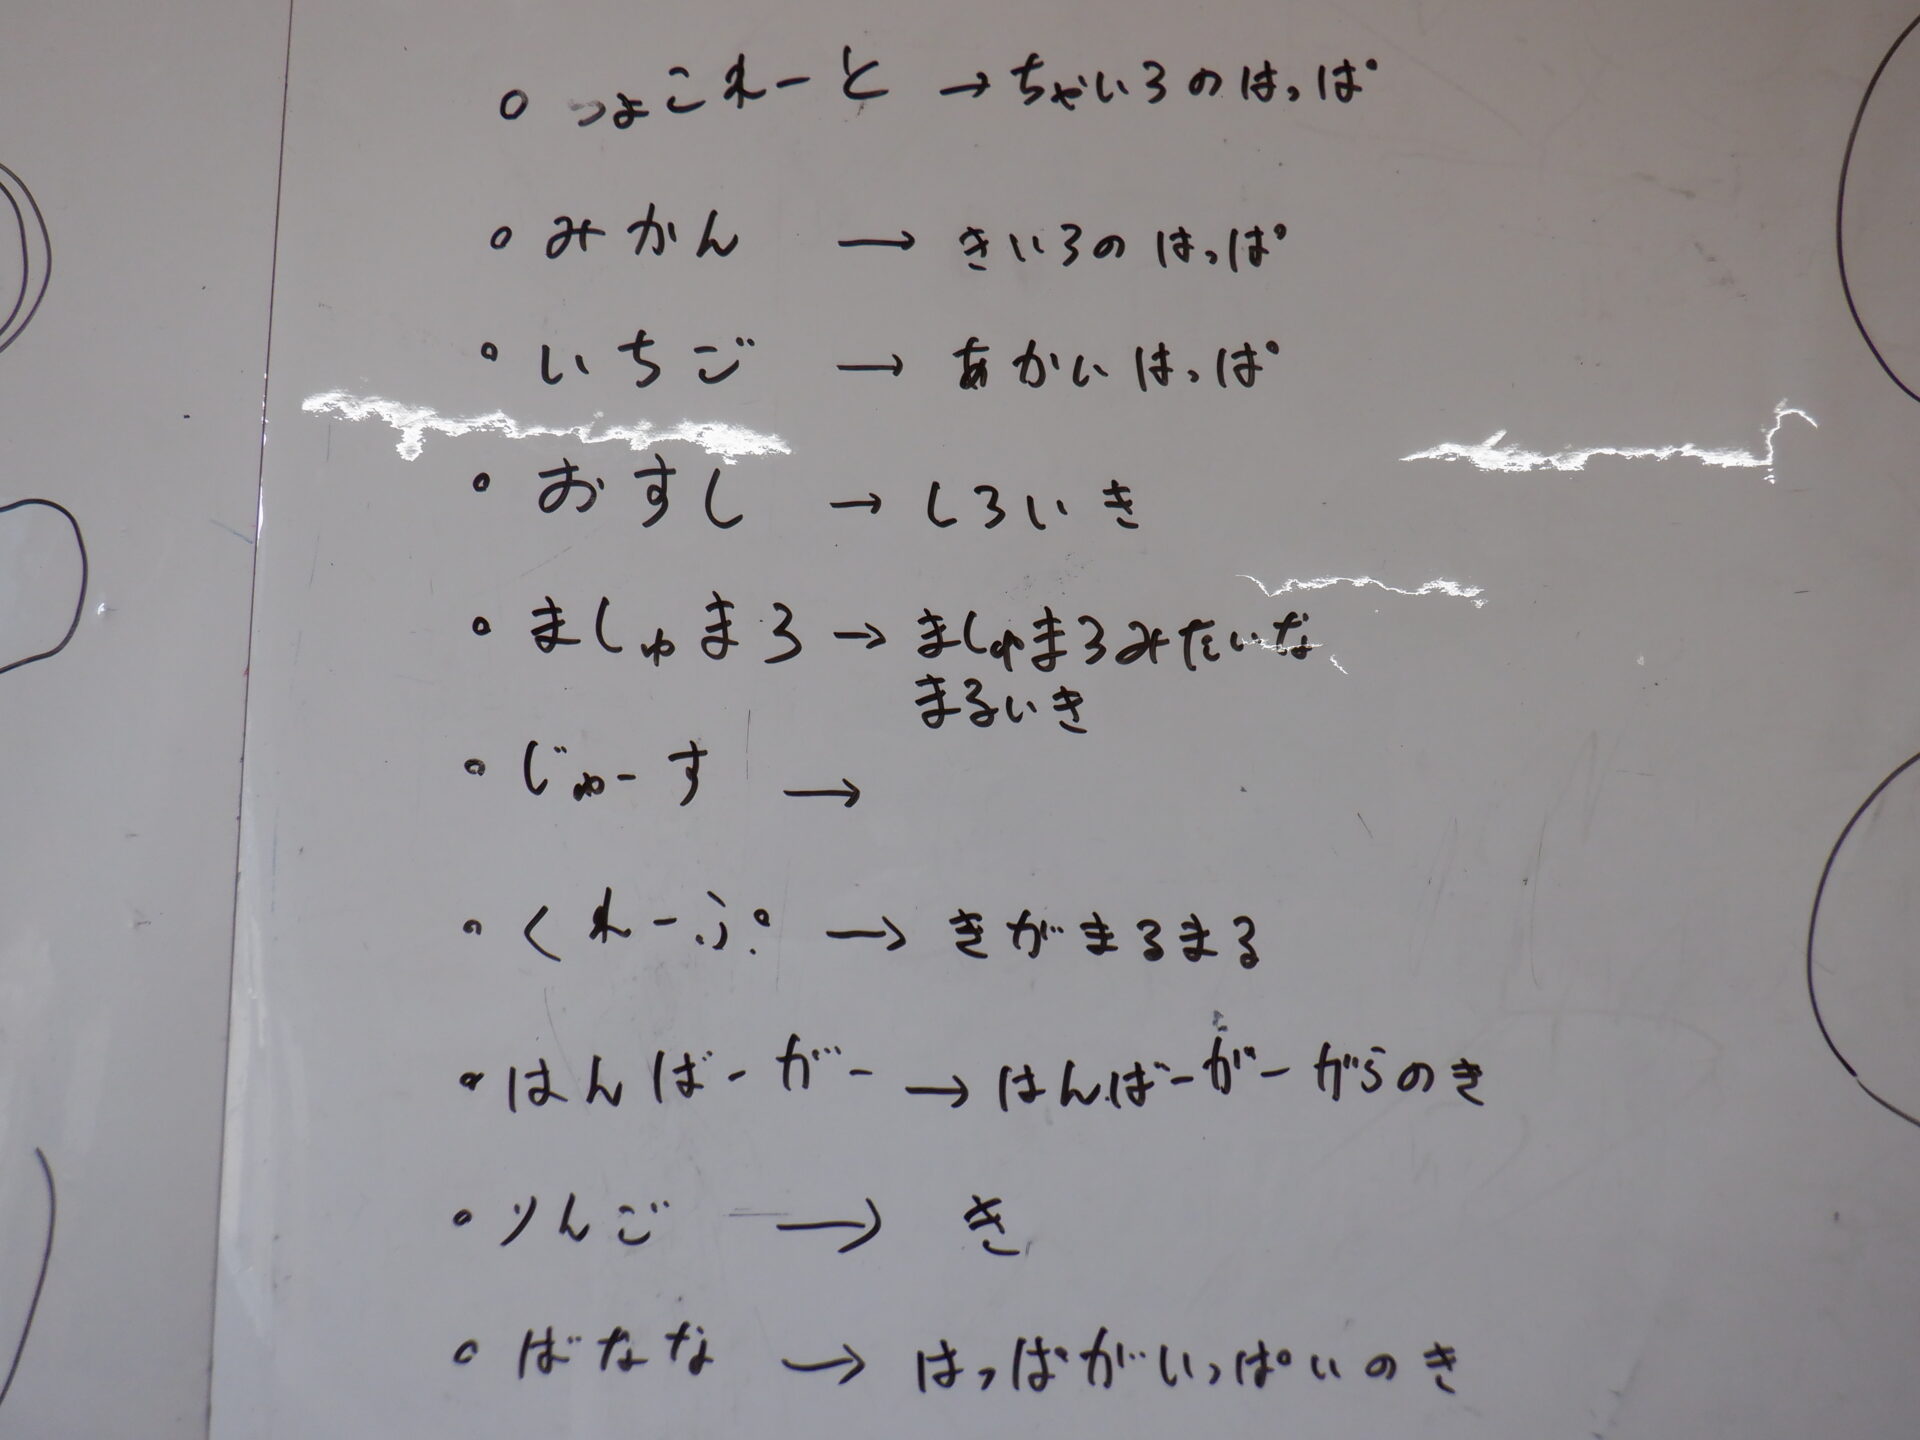 ○ つょこれーと → ちゃいろのはっぱ
○ みかん → きいろのはっぱ
○ いちご → あかいはっぱ
○ おすし → しろいき
○ ましゅまろ → ましゅまろみたいな
まるいき
○ じゅーす →
○ くれーぷ → きがまるまる
○ はんばーがー → はんばーがーがらのき
○ りんご → き
○ ばなな → はっぱがいっぱいのき